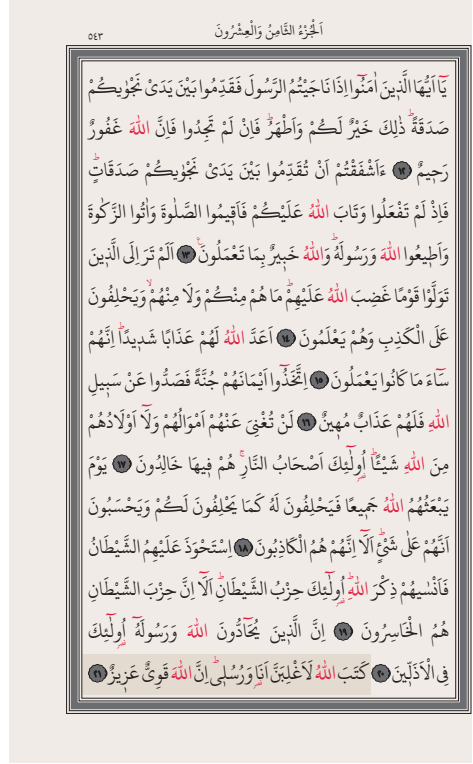 اَلْجُزْءُ الثَّامِنُ وَالْعِشْرُونَ
٥٤٣
يَٓا اَيُّهَا الَّذٖينَ اٰمَنُٓوا اِذَا نَاجَيْتُمُ الرَّسُولَ فَقَدِّمُوا بَيْنَ يَدَىْ نَجْوٰيكُمْ
صَدَقَةًؕ ذٰلِكَ خَيْرٌ لَكُمْ وَاَطْهَرُؕ فَاِنْ لَمْ تَجِدُوا فَاِنَّ اللّٰهَ غَفُورٌ
رَحٖيمٌ ﴿١٢﴾ ءَاَشْفَقْتُمْ اَنْ تُقَدِّمُوا بَيْنَ يَدَىْ نَجْوٰيكُمْ صَدَقَاتٍؕ
فَاِذْ لَمْ تَفْعَلُوا وَتَابَ اللّٰهُ عَلَيْكُمْ فَاَقٖيمُوا الصَّلٰوةَ وَاٰتُوا الزَّكٰوةَ
وَاَطٖيعُوا اللّٰهَ وَرَسُولَهُؕ وَاللّٰهُ خَبٖيرٌ بِمَا تَعْمَلُونَ ﴿١٣﴾ اَلَمْ تَرَ اِلَى الَّذٖينَ
تَوَلَّوْا قَوْمًا غَضِبَ اللّٰهُ عَلَيْهِمْؕ مَا هُمْ مِنْكُمْ وَلَا مِنْهُمْۙ وَيَحْلِفُونَ
عَلَى الْكَذِبِ وَهُمْ يَعْلَمُونَ ﴿١٤﴾ اَعَدَّ اللّٰهُ لَهُمْ عَذَابًا شَدٖيدًاؕ اِنَّهُمْ
سَٓاءَ مَا كَانُوا يَعْمَلُونَ ﴿١٥﴾ اِتَّخَذُٓوا اَيْمَانَهُمْ جُنَّةً فَصَدُّوا عَنْ سَبٖيلِ
اللّٰهِ فَلَهُمْ عَذَابٌ مُهٖينٌ ﴿١٦﴾ لَنْ تُغْنِىَ عَنْهُمْ اَمْوَالُهُمْ وَلَٓا اَوْلَادُهُمْ
مِنَ اللّٰهِ شَيْـًٔاؕ اُو۬لٰٓئِكَ اَصْحَابُ النَّارِؕ هُمْ فٖيهَا خَالِدُونَ ﴿١٧﴾ يَوْمَ
يَبْعَثُهُمُ اللّٰهُ جَمٖيعًا فَيَحْلِفُونَ لَهُ كَمَا يَحْلِفُونَ لَكُمْ وَيَحْسَبُونَ
اَنَّهُمْ عَلٰى شَىْءٍؕ اَلَٓا اِنَّهُمْ هُمُ الْكَاذِبُونَ ﴿١٨﴾ اِسْتَحْوَذَ عَلَيْهِمُ الشَّيْطَانُ
فَاَنْسٰيهُمْ ذِكْرَ اللّٰهِؕ اُو۬لٰٓئِكَ حِزْبُ الشَّيْطَانِؕ اَلَٓا اِنَّ حِزْبَ الشَّيْطَانِ
هُمُ الْخَاسِرُونَ ﴿١٩﴾ اِنَّ الَّذٖينَ يُحَٓادُّونَ اللّٰهَ وَرَسُولَهُٓ اُو۬لٰٓئِكَ
فِى الْاَذَلّٖينَ ﴿٢٠﴾ كَتَبَ اللّٰهُ لَاَغْلِبَنَّ اَنَا۬ وَرُسُلٖىؕ اِنَّ اللّٰهَ قَوِىٌّ عَزٖيزٌ ﴿٢١﴾